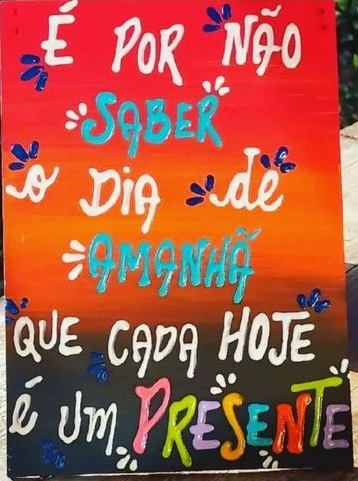 É POR NÃO
SABER
o DIA de
AMANHÃ
QUE CADA HOJE
é UM PRESENTE